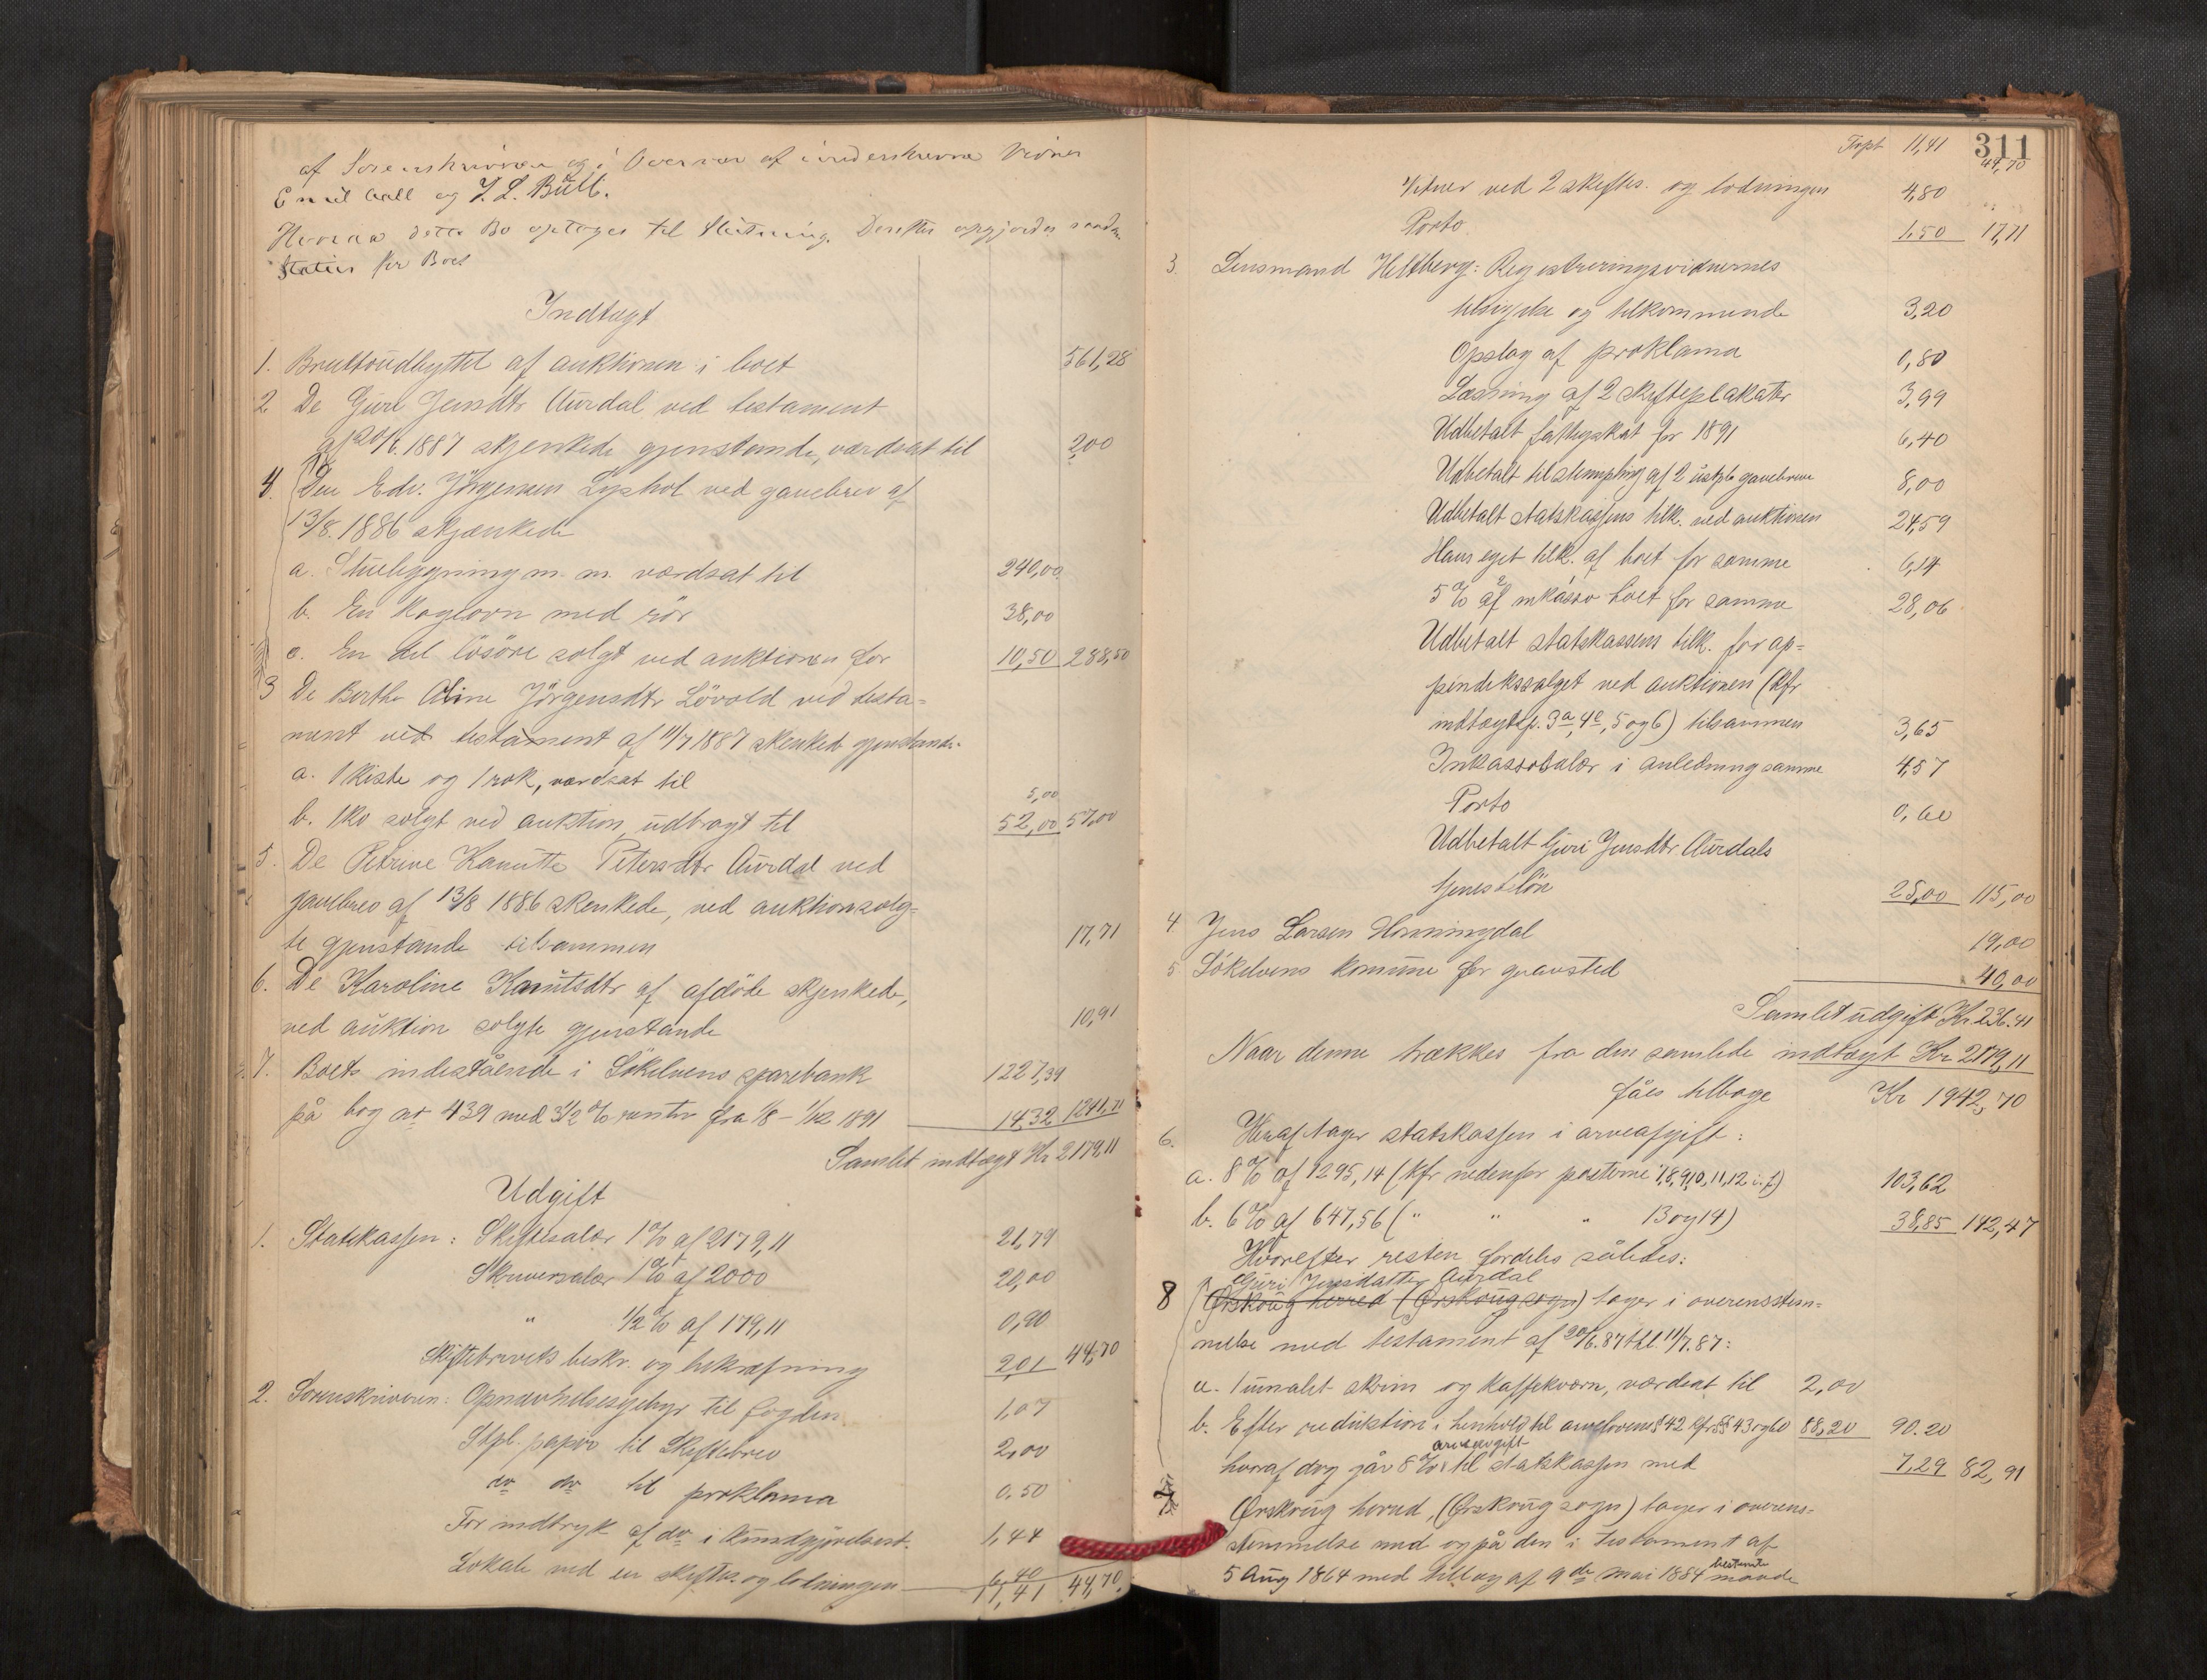 af Sorenskriveren og i Overvær af underskrevne Vidner
Emil Aall og J. L. Bull.
Hvorpaa dette Bo optoges til Slutning. Derefter opgjordes saadan
Status for Boet
Indtægt
1. Bruttoudbyttet af auktionen i boet 561,28
2 De Guri Jensdtr Aurdal ved testament
af 20/6. 1887 skjenkede gjenstande, værdsat til 2,00
4. Den Edv. Jörgensen Lyshol ved gavebrev af
13/8. 1886 skjænkede
a. Stuebygning m. m. værdsat til 240,00
b. En Kogeovn med rör 38,00
c. En del lösöre solgt ved auktionen for 10,50 288,50
3 De Berthe Oline Jörgensdtr Lövold ved testa-
ment ved testament af 11/7 1887 skenkede gjenstande.
a. 1 kiste og 1 rok, værdsat til 5,00
b. 1 ko solgt ved auktion, udbragt til 52,00 57,00
5. De Petrine Kanutte Petersdtr Aurdal ved
gavebrev af 13/8 1886 skenkede, ved auktion solg-
te gjenstande tilsammen 17,71
6. De Karoline Kanutsdtr af afdöde skjenkede,
ved auktion solgte gjenstande 10,91
7. Boets indestående i Sökelvens sparebank 1227,39
på bog no 439 med 3 1/2 % renter fra 1/8 - 1/12 1891 14,32 1241,71
Samlet indtægt Kr 2179,11
Udgift
1. Statskassen: Skiftesalær 1 % af 2179,11 21,79
Skriversalær 1 % af 2000 20,00
" 1/2 % af 179,11 0,90
Skiftebrevets beskr. og bekræfning 2,01 44,70
2. Sorenskriveren: Opnævnelsesgebyr til fogden 1,07
Stpl. papir til Skiftebrev 2,00
do do til proklama 0,50
For indtryk af do i Kundgjörelsest. 1,44
Lokale ved en skiftes. og lodningen 6,40
11,41 44,70
311
Trspt 11,41 44,70
Vidner ved 2 skiftes. og lodningen 4,80
Porto 1,50 17,71
3. Lensmand Heltberg: Registreringsvidnernes
tilsigelse og tilkommende 3,20
Opslag af proklama 0,80
Læsning af 2 skifteplakater 3,99
Udbetalt fattigskat for 1891 6,40
Udbetalt til stempling af 2 ustplt gavebreve 8,00
Udbetalt statskassens tilk. ved auktionen 24,59
Hans eget tilk. af boet for samme 6,14
5 % af inkasso boet for samme 28,06
Udbetalt statskassens tilk. for ap-
pendikssalget ved auktionen (Kfr
indtægtsp. 3a, 4c, 5 og 6) tilsammen 3,65
Inkassosalær i anledning samme 4,57
Porto 0,60
Udbetalt Guri Jensdtr Aurdals
tjenestelön 25,00 115,00
4 Jens Larsen Honningdal 19,00
5 Sökelvens komune for gravsted 40,00
Samlet udgift Kr 236.41
Naar denne trækkes fra den samlede indtægt Kr 2179,11
fåes tilbage Kr 1942,70
6. Heraf tager statskassen i arveafgift:
a. 8 % af 1295,14 (kfr nedenfor posterne 7,8,9,10,11,12 i. f.) 103,62
b. 6 % af 647,56 (" " " 13 og 14) 38,85 142,47
Hvorefter resten fordeles således:
Guri Jensdatter Aurdal
8 Ørskoug herred (Ørskoug sogn) tager i overensstem-
melse med testament af 20/6.87 thl. 11/7.87:
a. 1 umalet skrin og kaffekværn, værdsat til 2,00
b. Efter reduktion i henhold til arvelovens § 42 kfr §§ 43 og 60 88,20 90.20
arveavgift
hvoraf dog går 8 % til statskassen med 7,29 82,91
7 Ørskoug herred, (Ørskoug sogn) tager i overens-
stemmelse med og på den i testament af
bestemte
5 Aug 1864 med tillæg af 9de mai 1884 maade